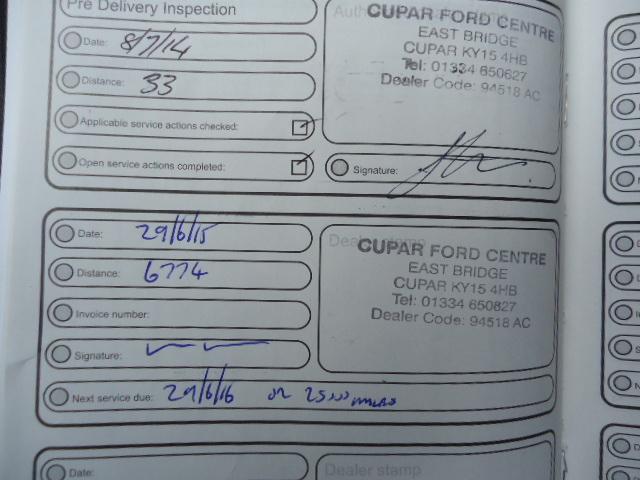 Pre Delivery Inspection
Date: 8/7/14
Distance: 33
Applicable service actions checked:
Open service actions completed:
CUPAR FORD CENTRE
EAST BRIDGE
CUPAR KY15 4HB
Tel: 01334 650627
Dealer Code: 94518 AC
Signature:
Date: 29/6/15
Distance: 6774
Invoice number:
Signature:
Next service due: 29/6/16 or 25000 miles
Dealer stamp
CUPAR FORD CENTRE
EAST BRIDGE
CUPAR KY15 4HB
Tel: 01334 650827
Dealer Code: 94518 AC
Date:
Dealer stamp